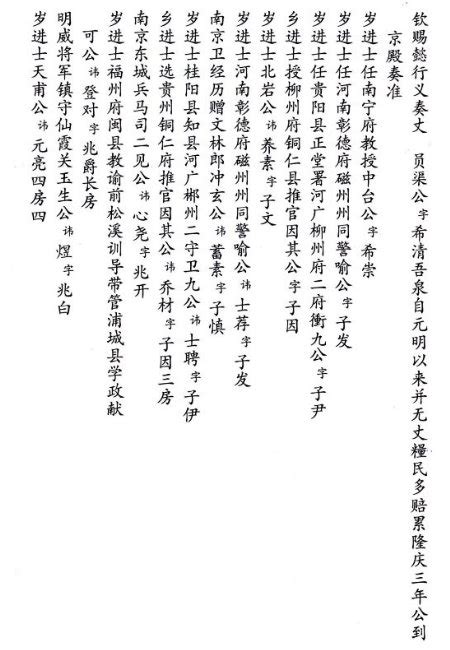 钦赐懿行义奏丈 员渠公字希清吾泉自元明以来并无丈糧民多赔累隆庆三年公到
京殿奏准
岁进士任南宁府教授中台公字希崇
岁进士任河南彰德府磁州州同警喻公字子发
岁进士任贵阳县正堂署河广柳州府二府衝九公字子尹
乡进士授柳州府铜仁县推官因其公字子因
岁进士北岩公讳养素字子文
岁进士河南彰德府磁州州同警喻公讳士荐字子发
南京卫经历赠文林郎冲玄公讳蓄素字子慎
岁进士桂阳县知县河广郴州二守卫九公讳士聘字子伊
乡进士选贵州铜仁府推官因其公讳乔材字子因三房
南京东城兵马司二见公讳心尧字兆开
岁进士福州府闽县教谕前松溪训导带管浦城县学政献
可公讳登对字兆爵长房
明威将军镇守仙霞关玉生公讳煜字兆白
岁进士天甫公讳元亮四房四